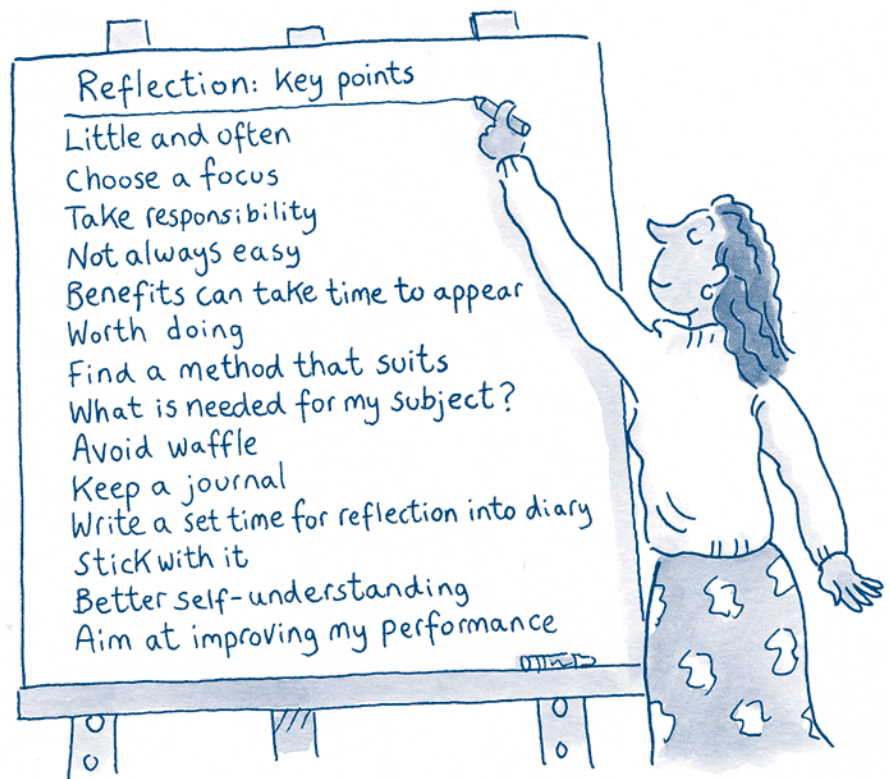 Reflection: Key points
Little and often
Choose a focus
Take responsibility
Not always easy
Benefits can take time to appear
Worth doing
Find a method that suits
What is needed for my subject?
Avoid waffle
Keep a journal
Write a set time for reflection into diary
Stick with it
Better self-understanding
Aim at improving my performance